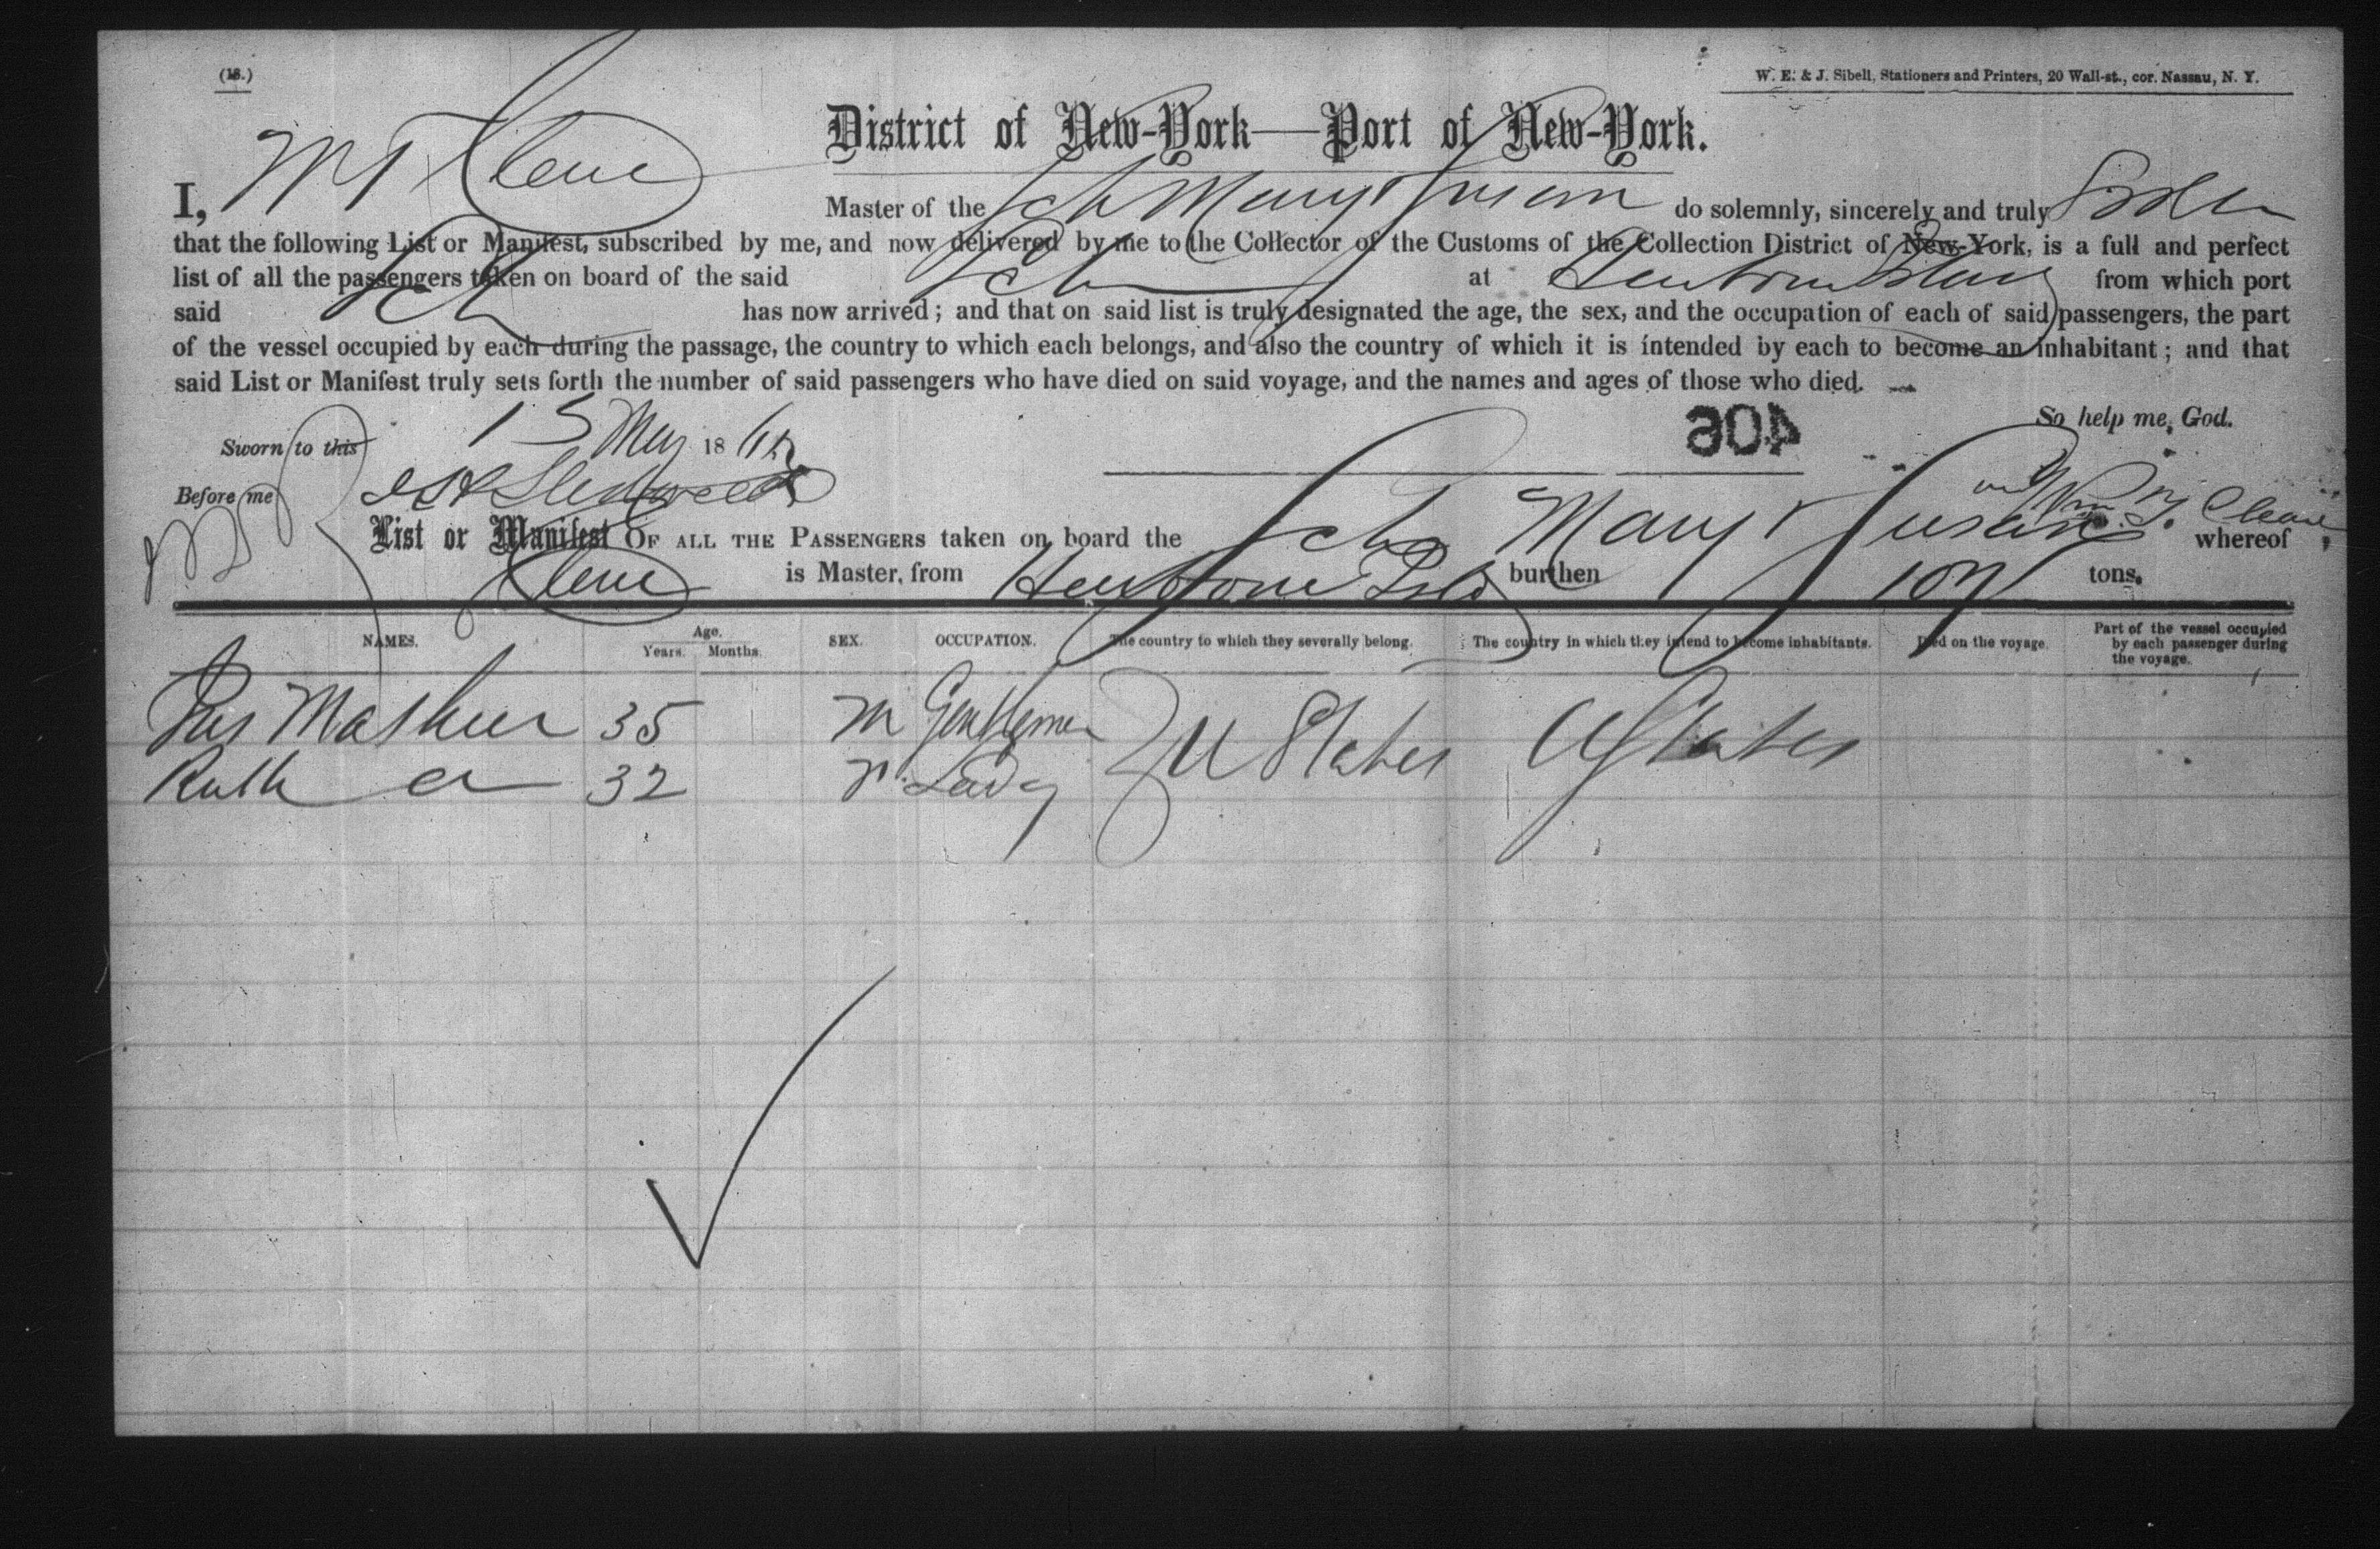 (18.)
W. E. & J. Sibell, Stationers and Printers, 20 Wall-st., cor. Nassau, N. Y.
District of New-York—Port of New-York.
I, Master of the Sch Mary & Susan do solemnly, sincerely and truly
that the following List or Manifest, subscribed by me, and now delivered by me to the Collector of the Customs of the Collection District of New-York, is a full and perfect
list of all the passengers taken on board of the said Sch at from which port
said Sch has now arrived; and that on said list is truly designated the age, the sex, and the occupation of each of said passengers, the part
of the vessel occupied by each during the passage, the country to which each belongs, and also the country of which it is intended by each to become an inhabitant; and that
said List or Manifest truly sets forth the number of said passengers who have died on said voyage, and the names and ages of those who died.
406
So help me, God.
Sworn to this 15 May 186
Before me
Wm T.
List or Manifest OF ALL THE PASSENGERS taken on board the Sch Mary & Susan whereof
is Master, from burthen 107 tons.
NAMES. Age. Years. Months. SEX. OCCUPATION. The country to which they severally belong. The country in which they intend to become inhabitants. Died on the voyage. Part of the vessel occupied by each passenger during the voyage.
35 m Gentleman U States U States
Ruth 32 Lady